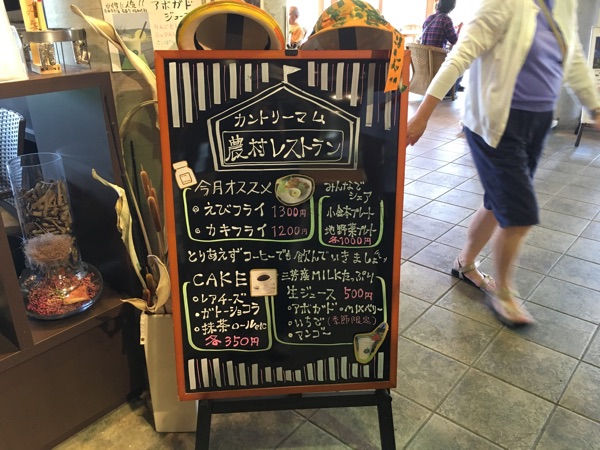 アボガド
ジュース
カントリーマム
農村レストラン
今月オススメ
えびフライ 1300円
カキフライ 1200円
みんなで
シェア
小倉本プレート
地野菜プレート
各1000円
とりあえずコーヒーでも飲んでいきましょ
CAKE
・レアチーズ
・ガトーショコラ
・抹茶ロールetc
各350円
三芳産MILKたっぷり
生ジュース 500円
・アボガド ・MIXベリー
・いちご(季節限定)
・マンゴー